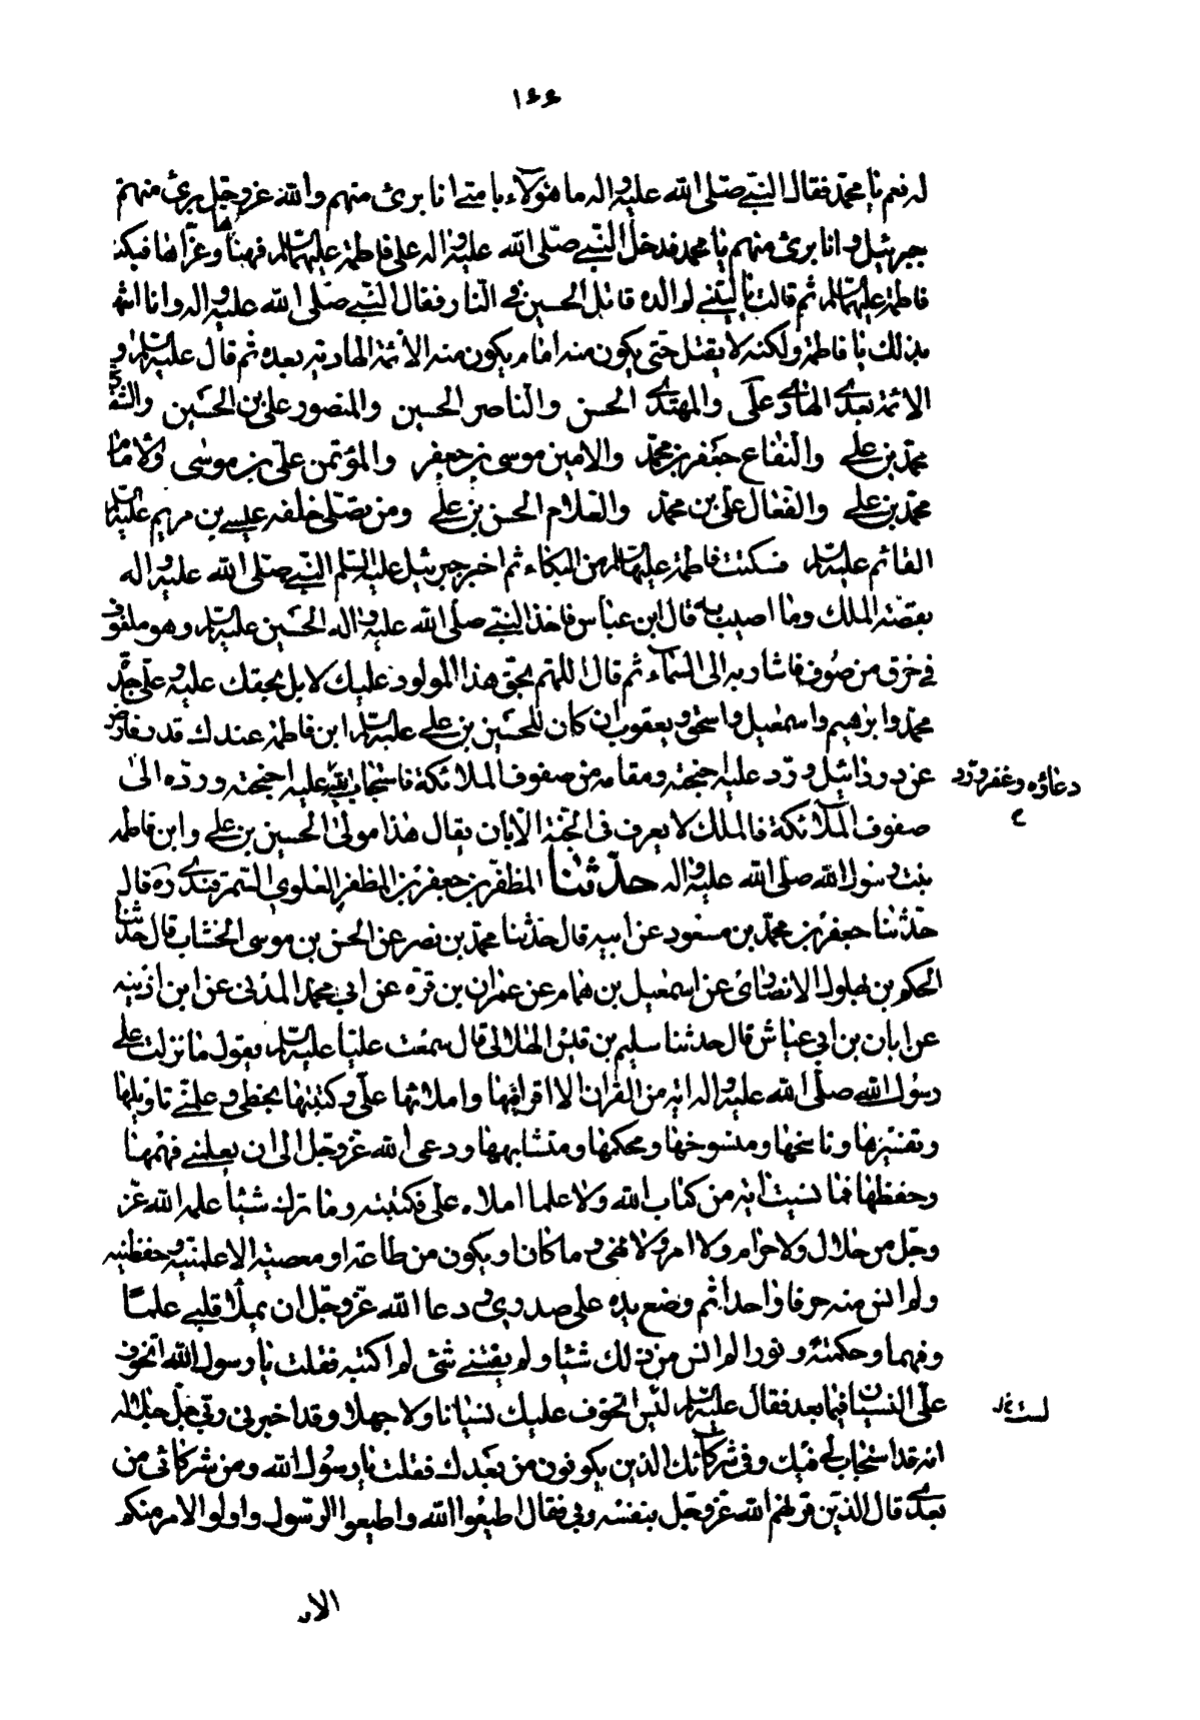 ١٤٤
له نعم يا محمد فقال النبي صلى الله عليه واله ما هؤلاء بامتي انا برئ منهم والله عز وجل برئ منهم
جبرئيل وانا برئ منهم يا محمد فدخل النبي صلى الله عليه واله على فاطمة عليها السلام فهناها وعزاها فبكت
فاطمة عليها السلام ثم قالت يا ليتني لم الده قاتل الحسين في النار فقال النبي صلى الله عليه واله وانا اشهد
بذلك يا فاطمة ولكنه لا يقتل حتى يكون منه امام يكون منه الائمة الهادية بعده ثم قال عليه السلام و
الائمة بعدي الهادي علي والمهتدي الحسن والناصر الحسين والمنصور علي بن الحسين والشافع
محمد بن علي والنفاع جعفر بن محمد والامين موسى بن جعفر والمؤتمن علي بن موسى والامام
محمد بن علي والفعال علي بن محمد والعلام الحسن بن علي ومن يصلي خلفه عيسى بن مريم عليه السلام
القائم عليه السلام فسكتت فاطمة عليها السلام من البكاء ثم اخبر جبرئيل عليه السلم النبي صلى الله عليه واله
بقصة الملك وما اصيب به قال ابن عباس فاخذ النبي صلى الله عليه واله الحسين عليه السلام وهو ملفوف
في خرق من صوف فاشار به الى السماء ثم قال اللهم بحق هذا المولود عليك لا بل بحقك عليه وعلى جده
محمد وابرهيم واسمعيل واسحق ويعقوب ان كان للحسين بن علي عليه السلام ابن فاطمة عندك قدر فارض
عن دردائيل ورد عليه اجنحته ومقامه من صفوف الملائكة فاستجاب الله عليه اجنحته ورده الى
دعاؤه وغفر ورد
ع
صفوف الملائكة فالملك لا يعرف في الجنة الا بان يقال هذا مولى الحسين بن علي وابن فاطمة
بنت رسول الله صلى الله عليه واله حدثنا المظفر بن جعفر بن المظفر العلوي السمرقندي ره قال
حدثنا جعفر بن محمد بن مسعود عن ابيه قال حدثنا محمد بن نصر عن الحسن بن موسى الخشاب قال حدثنا
الحكم بن بهلول الانصارى عن اسمعيل بن همام عن عمران بن قرة عن ابي محمد المدني عن ابن اذنيه
عن ابان بن ابي عياش قال حدثنا سليم بن قيس الهلالي قال سمعت عليا عليه السلام يقول ما نزلت على
رسول الله صلى الله عليه واله اية من القران الا اقرانيها واملائها علي وكتبتها بخطي وعلمني تاويلها
وتفسيرها وناسخها ومنسوخها ومحكمها ومتشابهها ودعى الله عز وجل الى ان يعلمني فهمها
وحفظها فما نسيت اية من كتاب الله ولا علما املاه علي فكتبته وما ترك شيئا علمه الله عز
وجل من حلال ولا حرام ولا امر ولا نهي وما كان او يكون من طاعة او معصية الا علمنيه وحفظنيه
ولم انس منه حرفا واحدا ثم وضع يده على صدري و دعا الله عز وجل ان يملأ قلبي علما
وفهما وحكمة ونورا لم انس من ذلك شيئا ولم يفتني شئ لم اكتبه فقلت يا رسول الله اتخوف
علي النسيان فيما بعد فقال عليه السلام ليس اتخوف عليك نسيانا ولا جهلا وقد اخبرني ربي جل جلاله
لست خ ل
انه قد استجاب لي فيك وفي شركائك الذين يكونون من بعدك فقلت يا رسول الله ومن شركائي من
بعدي قال الذين قرنهم الله عز وجل بنفسه وبي فقال اطيعوا الله واطيعوا الرسول واولو الامر منكم
الاية